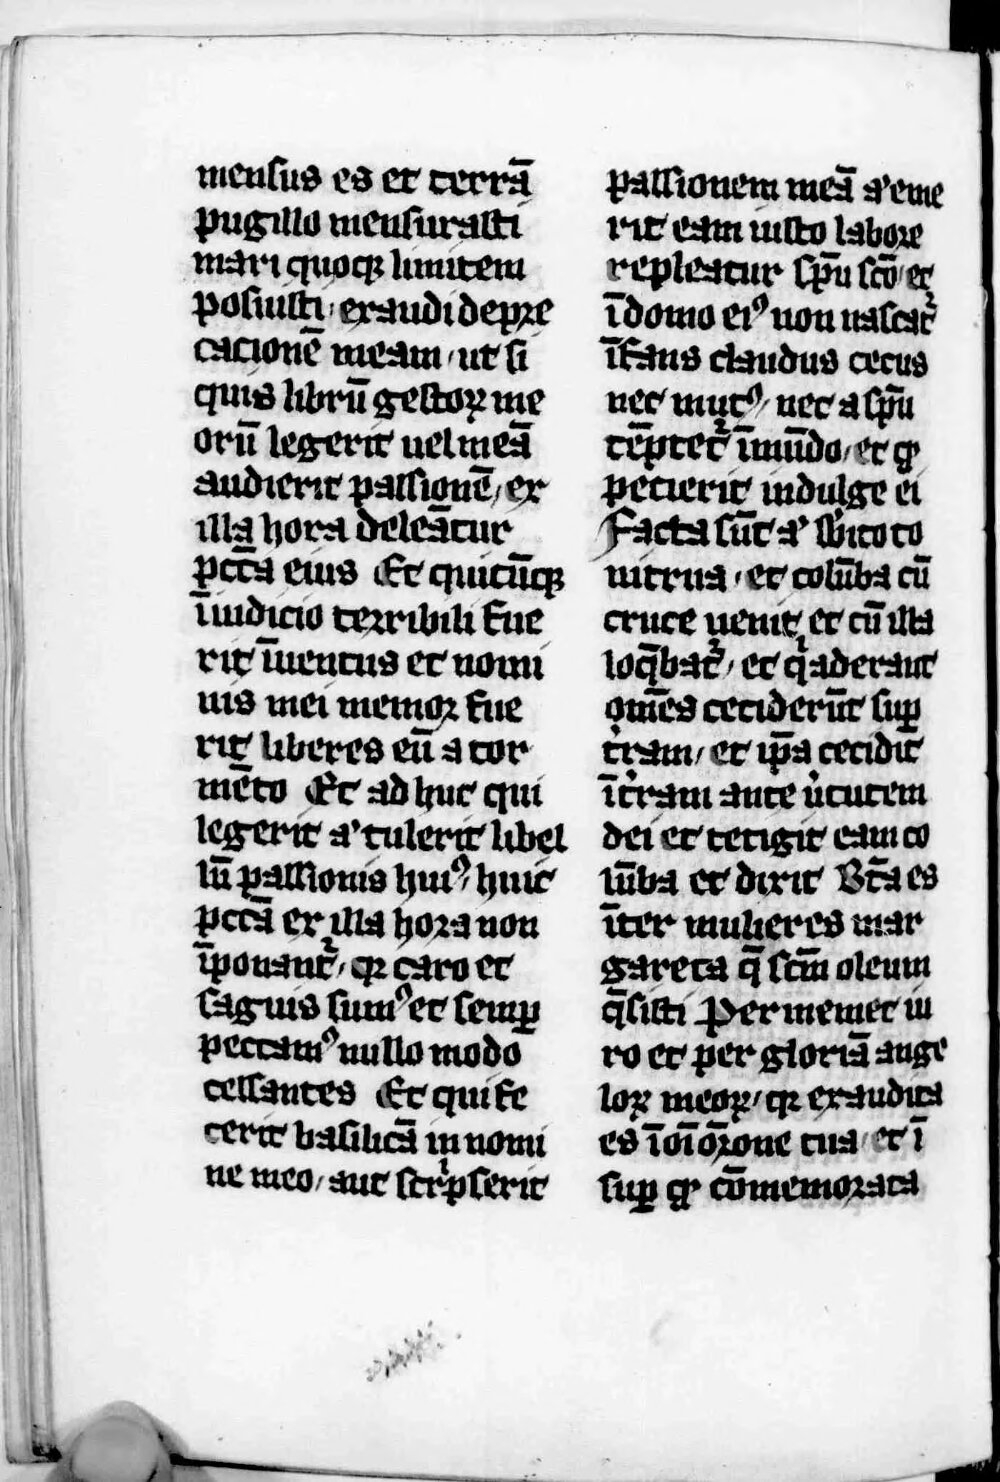 mensus es et terrā
pugillo mensurasti
mari quoqꝫ limitem
posuisti / exaudi depre
cacionē meam / ut si
quis librū gestoꝝ me
orū legerit uel meā
audierit passionē / ex
illa hora deleātur
pctā eius Et quicūqꝫ
ī iudicio terribili fue
rit īuentus et nomi
nis mei memor fue
rit liberes eū a tor
mēto Et ad huc qui
legerit aꝰ tulerit libel
lū passionis huiꝰ / huic
pctā ex illa hora non
īponantʳ / qꝛ caro et
sāguis sumꝰ et semꝑ
peccamꝰ nullo modo
cessantes Et qui fe
cerit basilicā in nomi
ne meo / aut scripserit
passionem meā aꝰ eme
rit eam iusto labore
repleatur spū scō / et
ī domo eiꝰ non nascatʳ
īfans claudus cecus
nec mutꝰ / nec a spū
tēptetʳ īmūdo / et qͥ
pecierit indulge ei
Facta sūt aꝰ sbito to
nitrua / et colūba cū
cruce uenit et cū illa
loq̄batʳ / et qͥ aderant
om̄es ceciderūt suꝑ
tʳram / et ip̄a cecidit
ī tʳram ante uͥtutem
dei et tetigit eam co
lūba et dixit Bt̄a es
īter mulieres mar
gareta q̄ scm̄ oleum
q̄sisti Per memet iu
ro et per gloriā ange
loꝝ meoꝝ / qꝛ exaudita
es ī oī or̄one tua / et ī
suꝑ qͥ cōmemorata